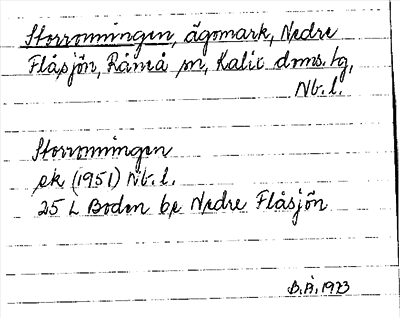 Storronningen, ägomark, Nedre
Flåsjön, Råneå sn, Kalix dms. tg,
Nb. l.
Storronningen
ek (1951) Nb. l.
25 L Boden be Nedre Flåsjön
B.Å. 1973